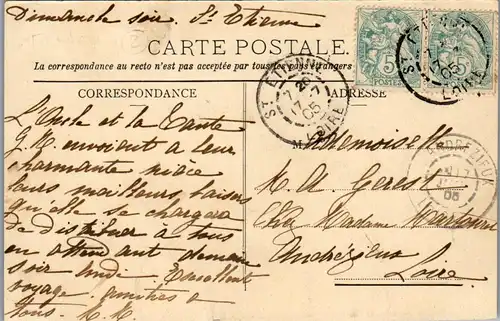 Dimanche soir St Etienne
CARTE POSTALE
La correspondance au recto n'est pas acceptée par tous les pays étrangers
CORRESPONDANCE
ADRESSE
ST ETIENNE
LOIRE
05
ST ETIENNE
LOIRE
05
5
5
L'Oncle et la Tante
G. R. envoient a leur
charmante nièce
leurs meilleurs baisers
qu'elle se chargera
de distribuer à tous
en attendant demain
soir lundi Excellent
voyage amitiés a
tous.
Mademoiselle
M. A. Gerest
Chez Madame
Andrézieux
Loire
05